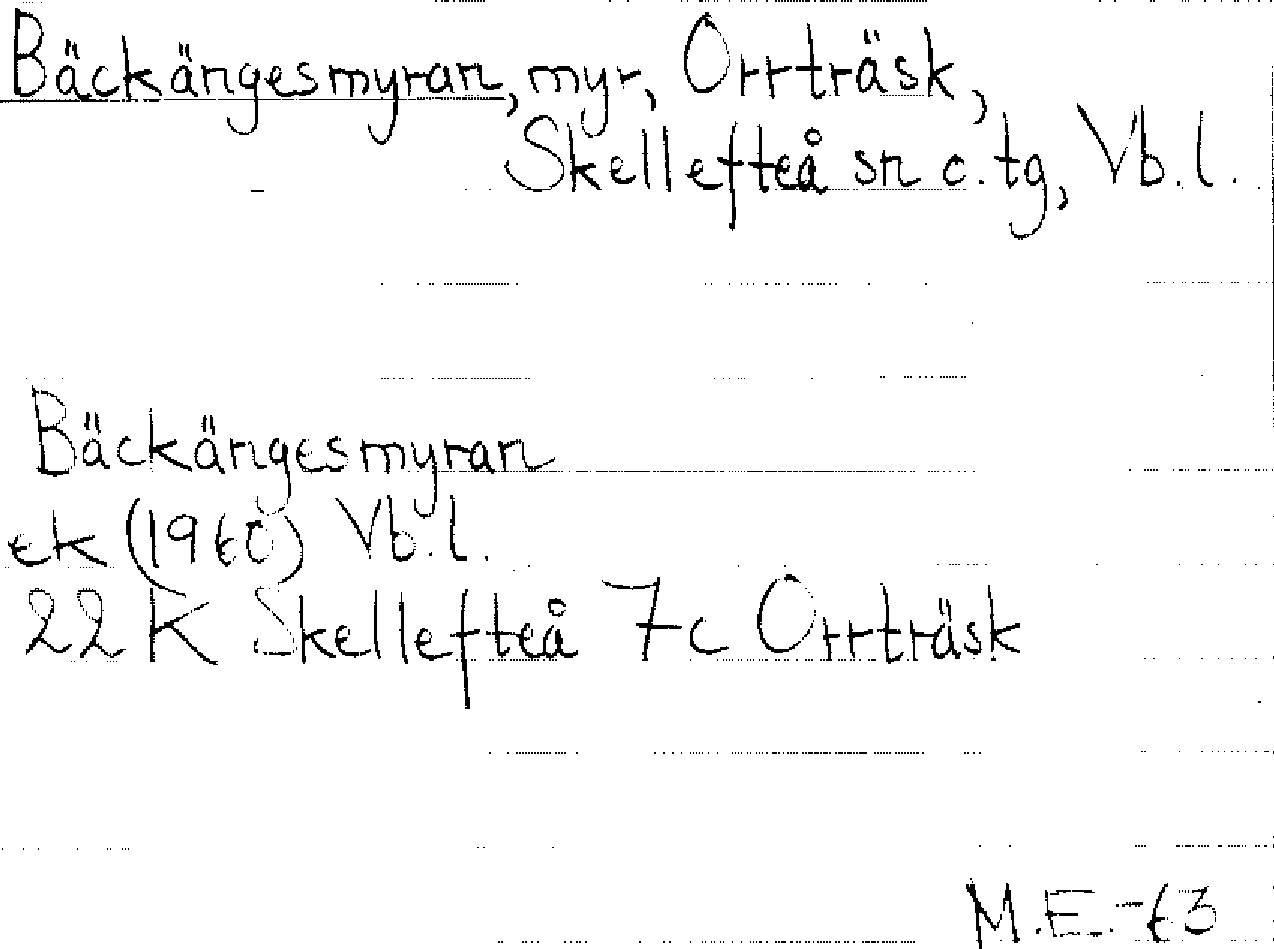 Bäckängesmyran, myr, Orrträsk,
Skellefteå sn o. tg, Vb. l.
Bäckängesmyran
ek (1960) Vb. l.
22 K Skellefteå 7c Orrträsk
M.E. -63